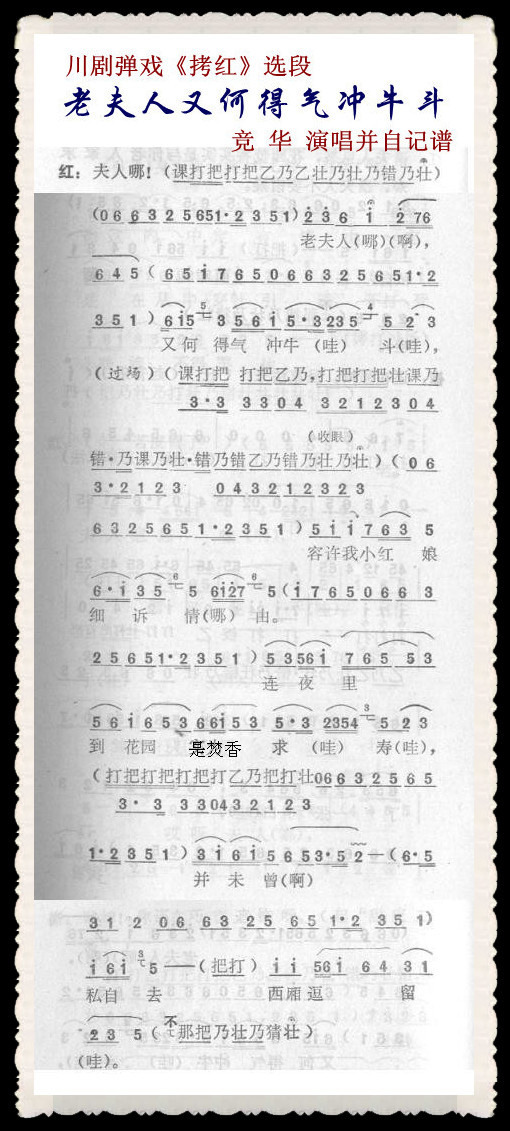 川剧弹戏《拷红》选段
老夫人又何得气冲牛斗
竞 华 演唱并自记谱
红：夫人哪！（课打把打把乙乃乙壮乃壮乃错乃壮）
（0 6 6 3 2 5 651·2 3 5 1）2 3 6 i 2 76
老夫人（哪）（啊），
6 4 5（6 5 i 7 6 5 0 6 6 3 2 5 6 5 1·2
3 5 1）6i5 5 3 5 6 i 5·3 235 4 5 2 3
又何 得气 冲牛（哇） 斗（哇），
（过场）（课打把 打把乙乃，打把打把壮课乃
3·3 3 3 0 4 3 2 1 2 3 0 4
（收眼）
错·乃课乃壮·错乃错乙乃错乃壮乃壮）（0 6
3·2 1 2 3 0 4 3 2 1 2 3 2 3
6 3 2 5 6 5 1·2 3 5 1）5 i i 7 6 3 5
容许我小红 娘
6·i 3 5 6 5 6i27 6 5（i 7 6 5 0 6 6 3
细 诉 情（哪） 由。
2 5 6 5 1·2 3 5 1）5 3 5 6 i 7 6 5 5 3
连 夜 里
5 6 i 6 5 3 6 6 i 5 3 5·3 2354 3 5 2 3
到 花园 是焚香 求（哇） 寿（哇），
（打把打把打把打乙乃把打壮0 6 6 3 2 5 6 5
3·3 3 3 0 4 3 2 1 2 3
1·2 3 5 1）3 i 6 i 5 6 5 3·5 2 —（6·5
并 未 曾（啊）
3 1 2 0 6 6 3 2 5 6 5 1·2 3 5 1）
i 6 i 3 5 ——（把打） i i 5 6 i 6 4 3 1
私自 去 西厢逗 留
2 3 5（不那把乃壮乃猜壮）
（哇）。